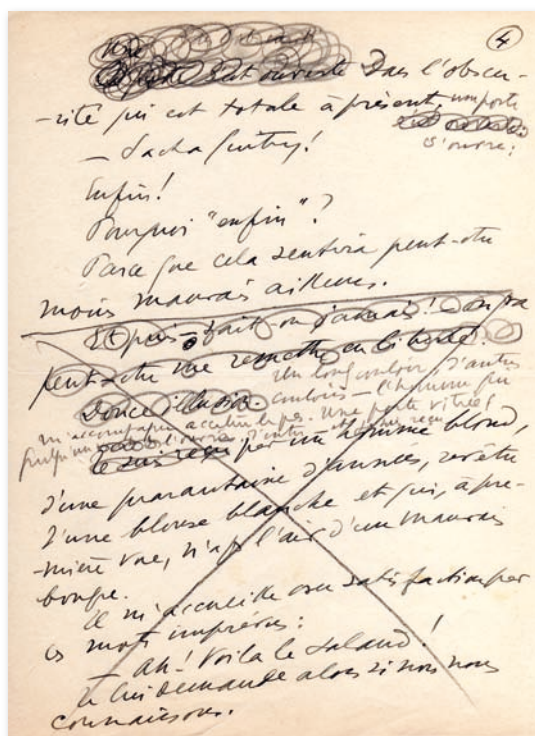 4
Une
est ouverte Dans l'obscu-
-rité qui est totale à présent, une porte
s'ouvre :
— Sacha Guitry !
Enfin !
Pourquoi "enfin" ?
Parce que cela sentira peut-être
moins mauvais ailleurs.
Et puis — sait-on jamais ! — on va
peut-être me remettre en liberté.
Douce illusion. Un long couloir, d'autres
couloirs — l'homme qui
m'accompagne accélère le pas. Une porte vitrée
je suis reçu par un homme blond,
d'une quarantaine d'années, revêtu
d'une blouse blanche et qui, à pre-
-mière vue, n'a pas l'air d'un mauvais
bougre.
Il m'accueille avec satisfaction par
ces mots imprévus :
— Ah ! Voilà le salaud !
Je lui demande alors si nous nous
connaissons.